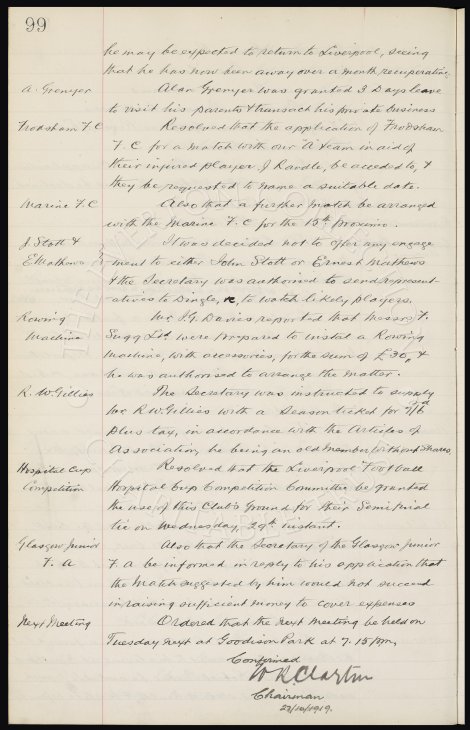 99
he may be expected to return to Liverpool, seeing
that he has now been away over a month recuperating
A. Grenyer Alan Grenyer was granted 3 Days leave
to visit his parents & transact his private business
Frodsham F C Resolved that the application of Frodsham
F. C for a match with our A team in aid of
their injured player J Randle, be acceded to, &
they be requested to name a suitable date.
Marine F. C Also that a further match be arranged
with the Marine F. C for the 15th proximo.
J. Stott & It was decided not to offer any engage
E Mathews ment to either John Stott or Ernest Mathews
& the Secretary was authorised to send represent-
atives to Dingle, to watch likely players.
Rowing Mr J. G. Davies reported that Messrs F.
Machine Sugg Ltd were prepared to instal a Rowing
machine, with accessories, for the sum of £30, &
he was authorised to arrange the matter.
R. W. Gillies The Secretary was instructed to supply
Mr R W Gillies with a Season ticket for 7/6
plus tax, in accordance with the Articles of
Association, he being an old member without shares.
Hospital Cup Resolved that the Liverpool Football
Competition Hospital Cup Competition Committee be granted
the use of this Club's Ground for their Semi Final
tie on Wednesday, 29th instant.
Glasgow Junior Also that the Secretary of the Glasgow Junior
F. A F. A be informed in reply to his application that
the Match suggested by him would not succeed
in raising sufficient money to cover expenses
Next Meeting Ordered that the next meeting be held on
Tuesday next at Goodison Park at 7.15 pm.
Confirmed
W R Clayton
Chairman